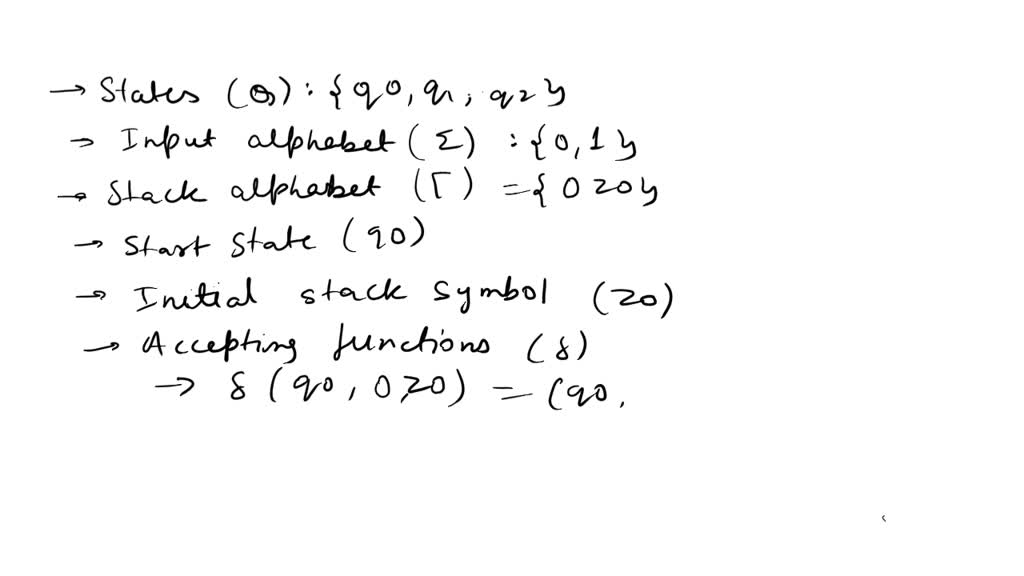 → States (Q) : {q0, q1, q2}
→ Input alphabet (Σ) : {0, 1}
→ Stack alphabet (Γ) = {0 z0}
→ Start state (q0)
→ Initial stack symbol (z0)
→ Accepting functions (δ)
→ δ (q0, 0, z0) = (q0,